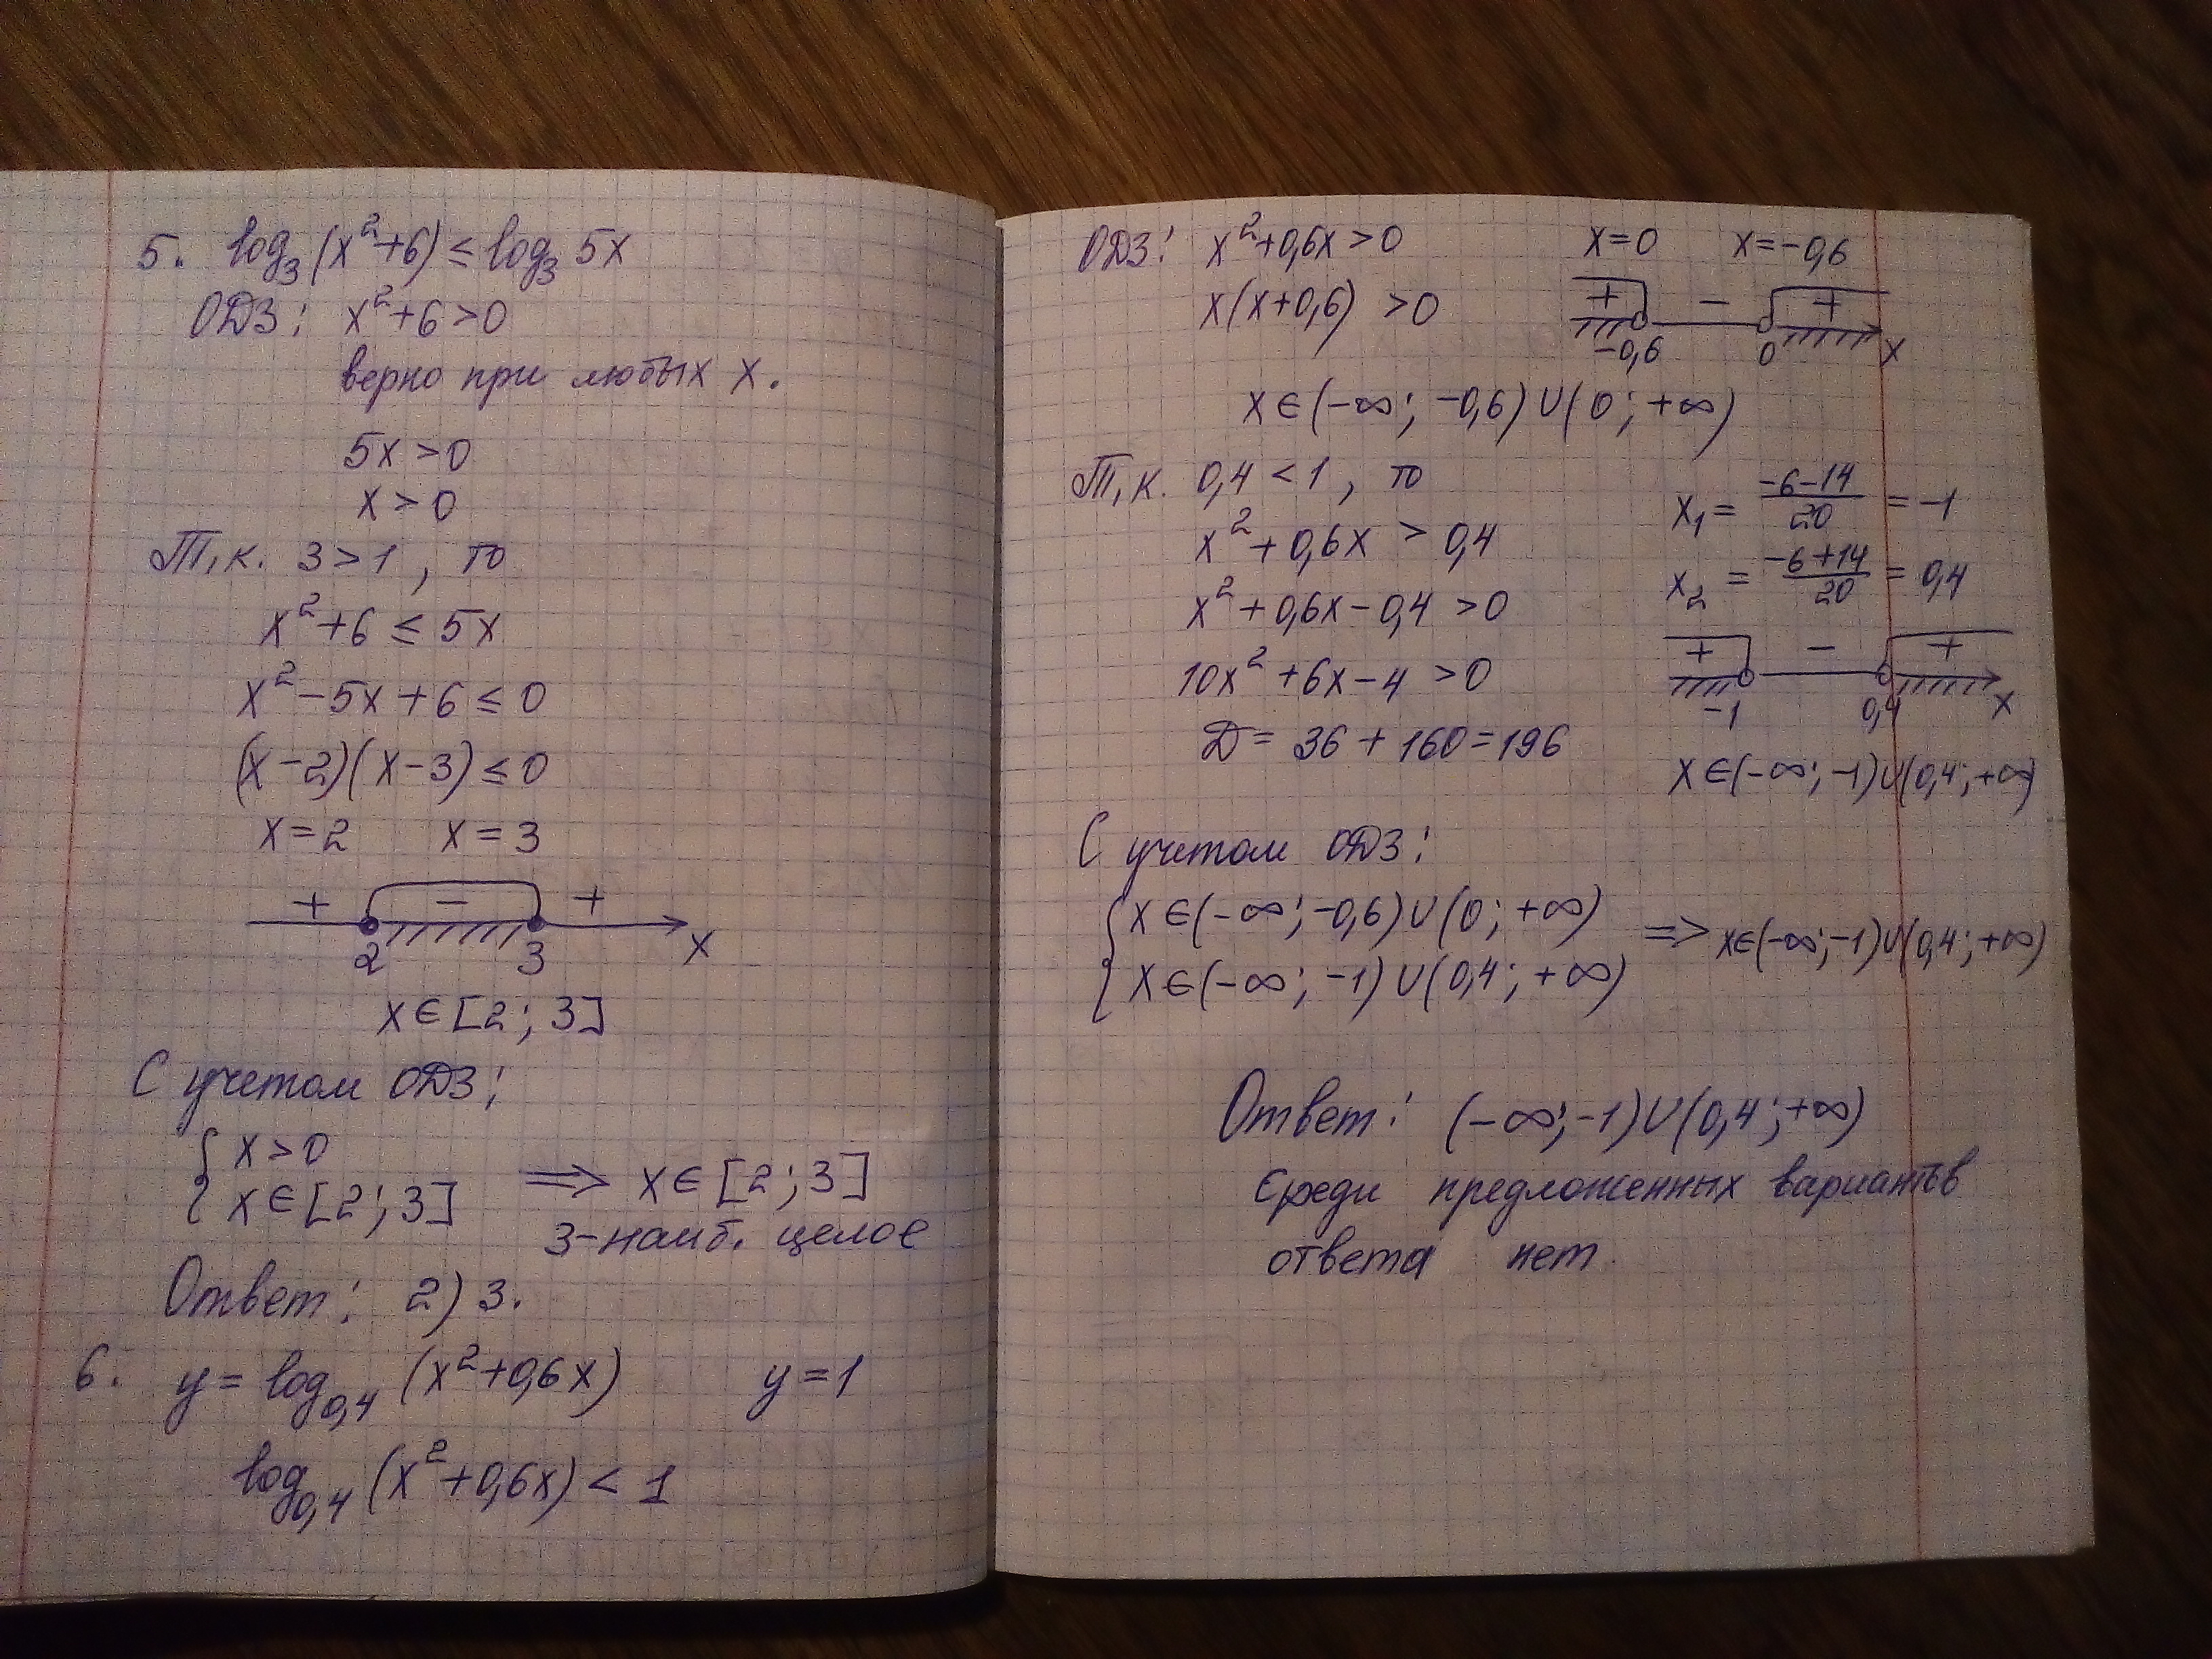 5. log₃(x²+6) ≤ log₃ 5x
ОДЗ: x²+6>0
верно при любых x.
5x>0
x>0
Т.к. 3>1, то
x²+6 ≤ 5x
x²-5x+6 ≤ 0
(x-2)(x-3) ≤ 0
x=2 x=3
+ - +
2 3 x
x∈[2;3]
С учетом ОДЗ:
{ x>0
{ x∈[2;3] => x∈[2;3]
3-наиб. целое
Ответ: 2) 3.
6. y = log₀,₄ (x²+0,6x) y=1
log₀,₄ (x²+0,6x) < 1
ОДЗ: x²+0,6x>0 x=0 x=-0,6
x(x+0,6) >0
+ - +
-0,6 0 x
x∈(-∞; -0,6)∪(0; +∞)
Т.к. 0,4 < 1, то
x²+0,6x > 0,4
x²+0,6x-0,4 >0
10x²+6x-4 >0
D = 36+160=196
x₁ = (-6-14)/20 = -1
x₂ = (-6+14)/20 = 0,4
+ - +
-1 0,4 x
x∈(-∞;-1)∪(0,4;+∞)
С учетом ОДЗ:
{ x∈(-∞;-0,6)∪(0;+∞)
{ x∈(-∞;-1)∪(0,4;+∞) => x∈(-∞;-1)∪(0,4;+∞)
Ответ: (-∞;-1)∪(0,4;+∞)
Среди предложенных вариантов
ответа нет.